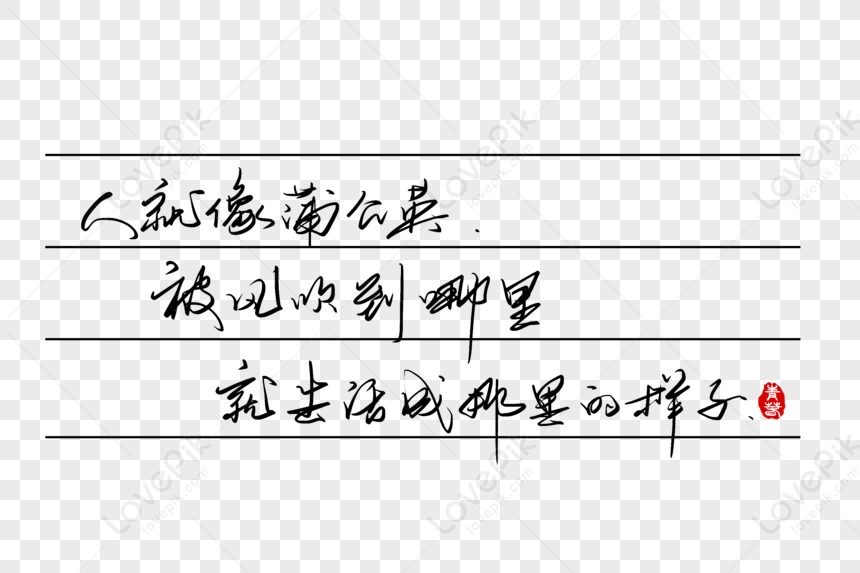 人就像蒲公英.
被风吹到哪里
就生活成那里的样子.
青春
LovePik
lovepik.com